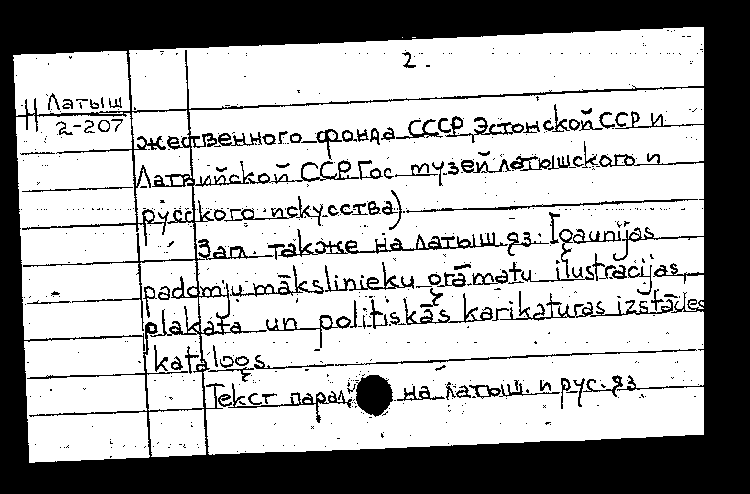 2.
Н Латыш
2-207
жественного фонда СССР, Эстонской ССР и
Латвийской ССР. Гос. музей латышского и
русского искусства).
Заг. также на латыш. яз.: Igaunijas
padomju mākslinieku grāmatu ilustrācijas,
plakāta un politiskās karikaturas izstādes
katalogs.
Текст парал. на латыш. и рус. яз.